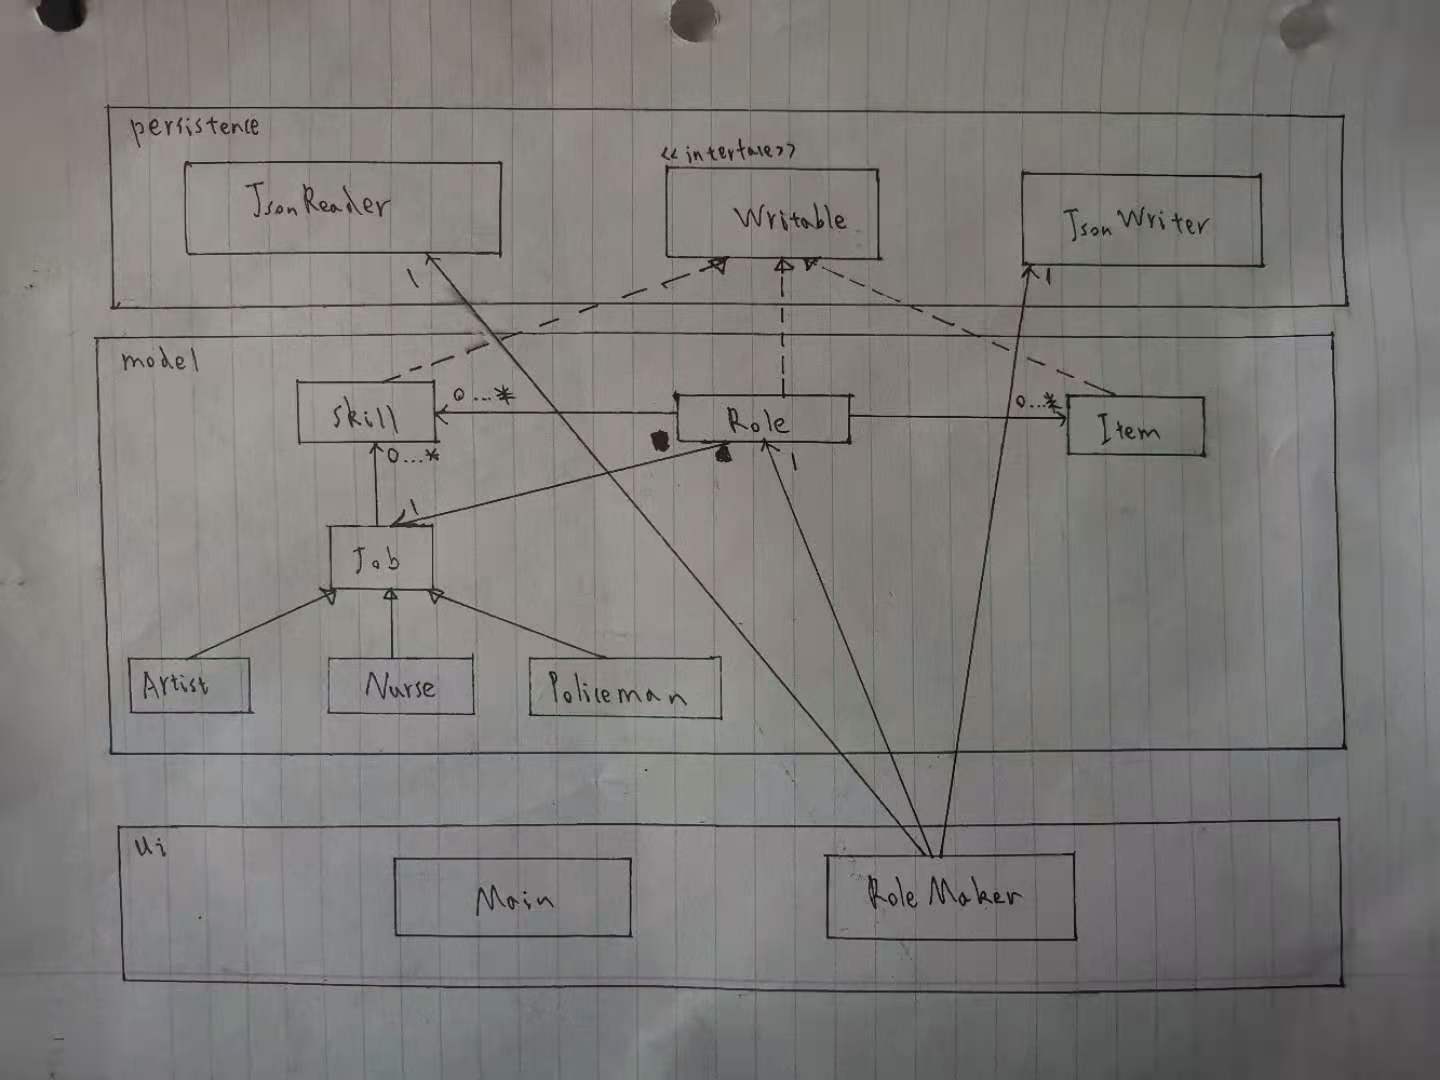 persistence
<<interface>>
JsonReader
Writable
Json Writer
1
1
model
Skill
0...*
Role
0...*
Item
0...*
1
1
Job
Artist
Nurse
Policeman
ui
Main
Role Maker